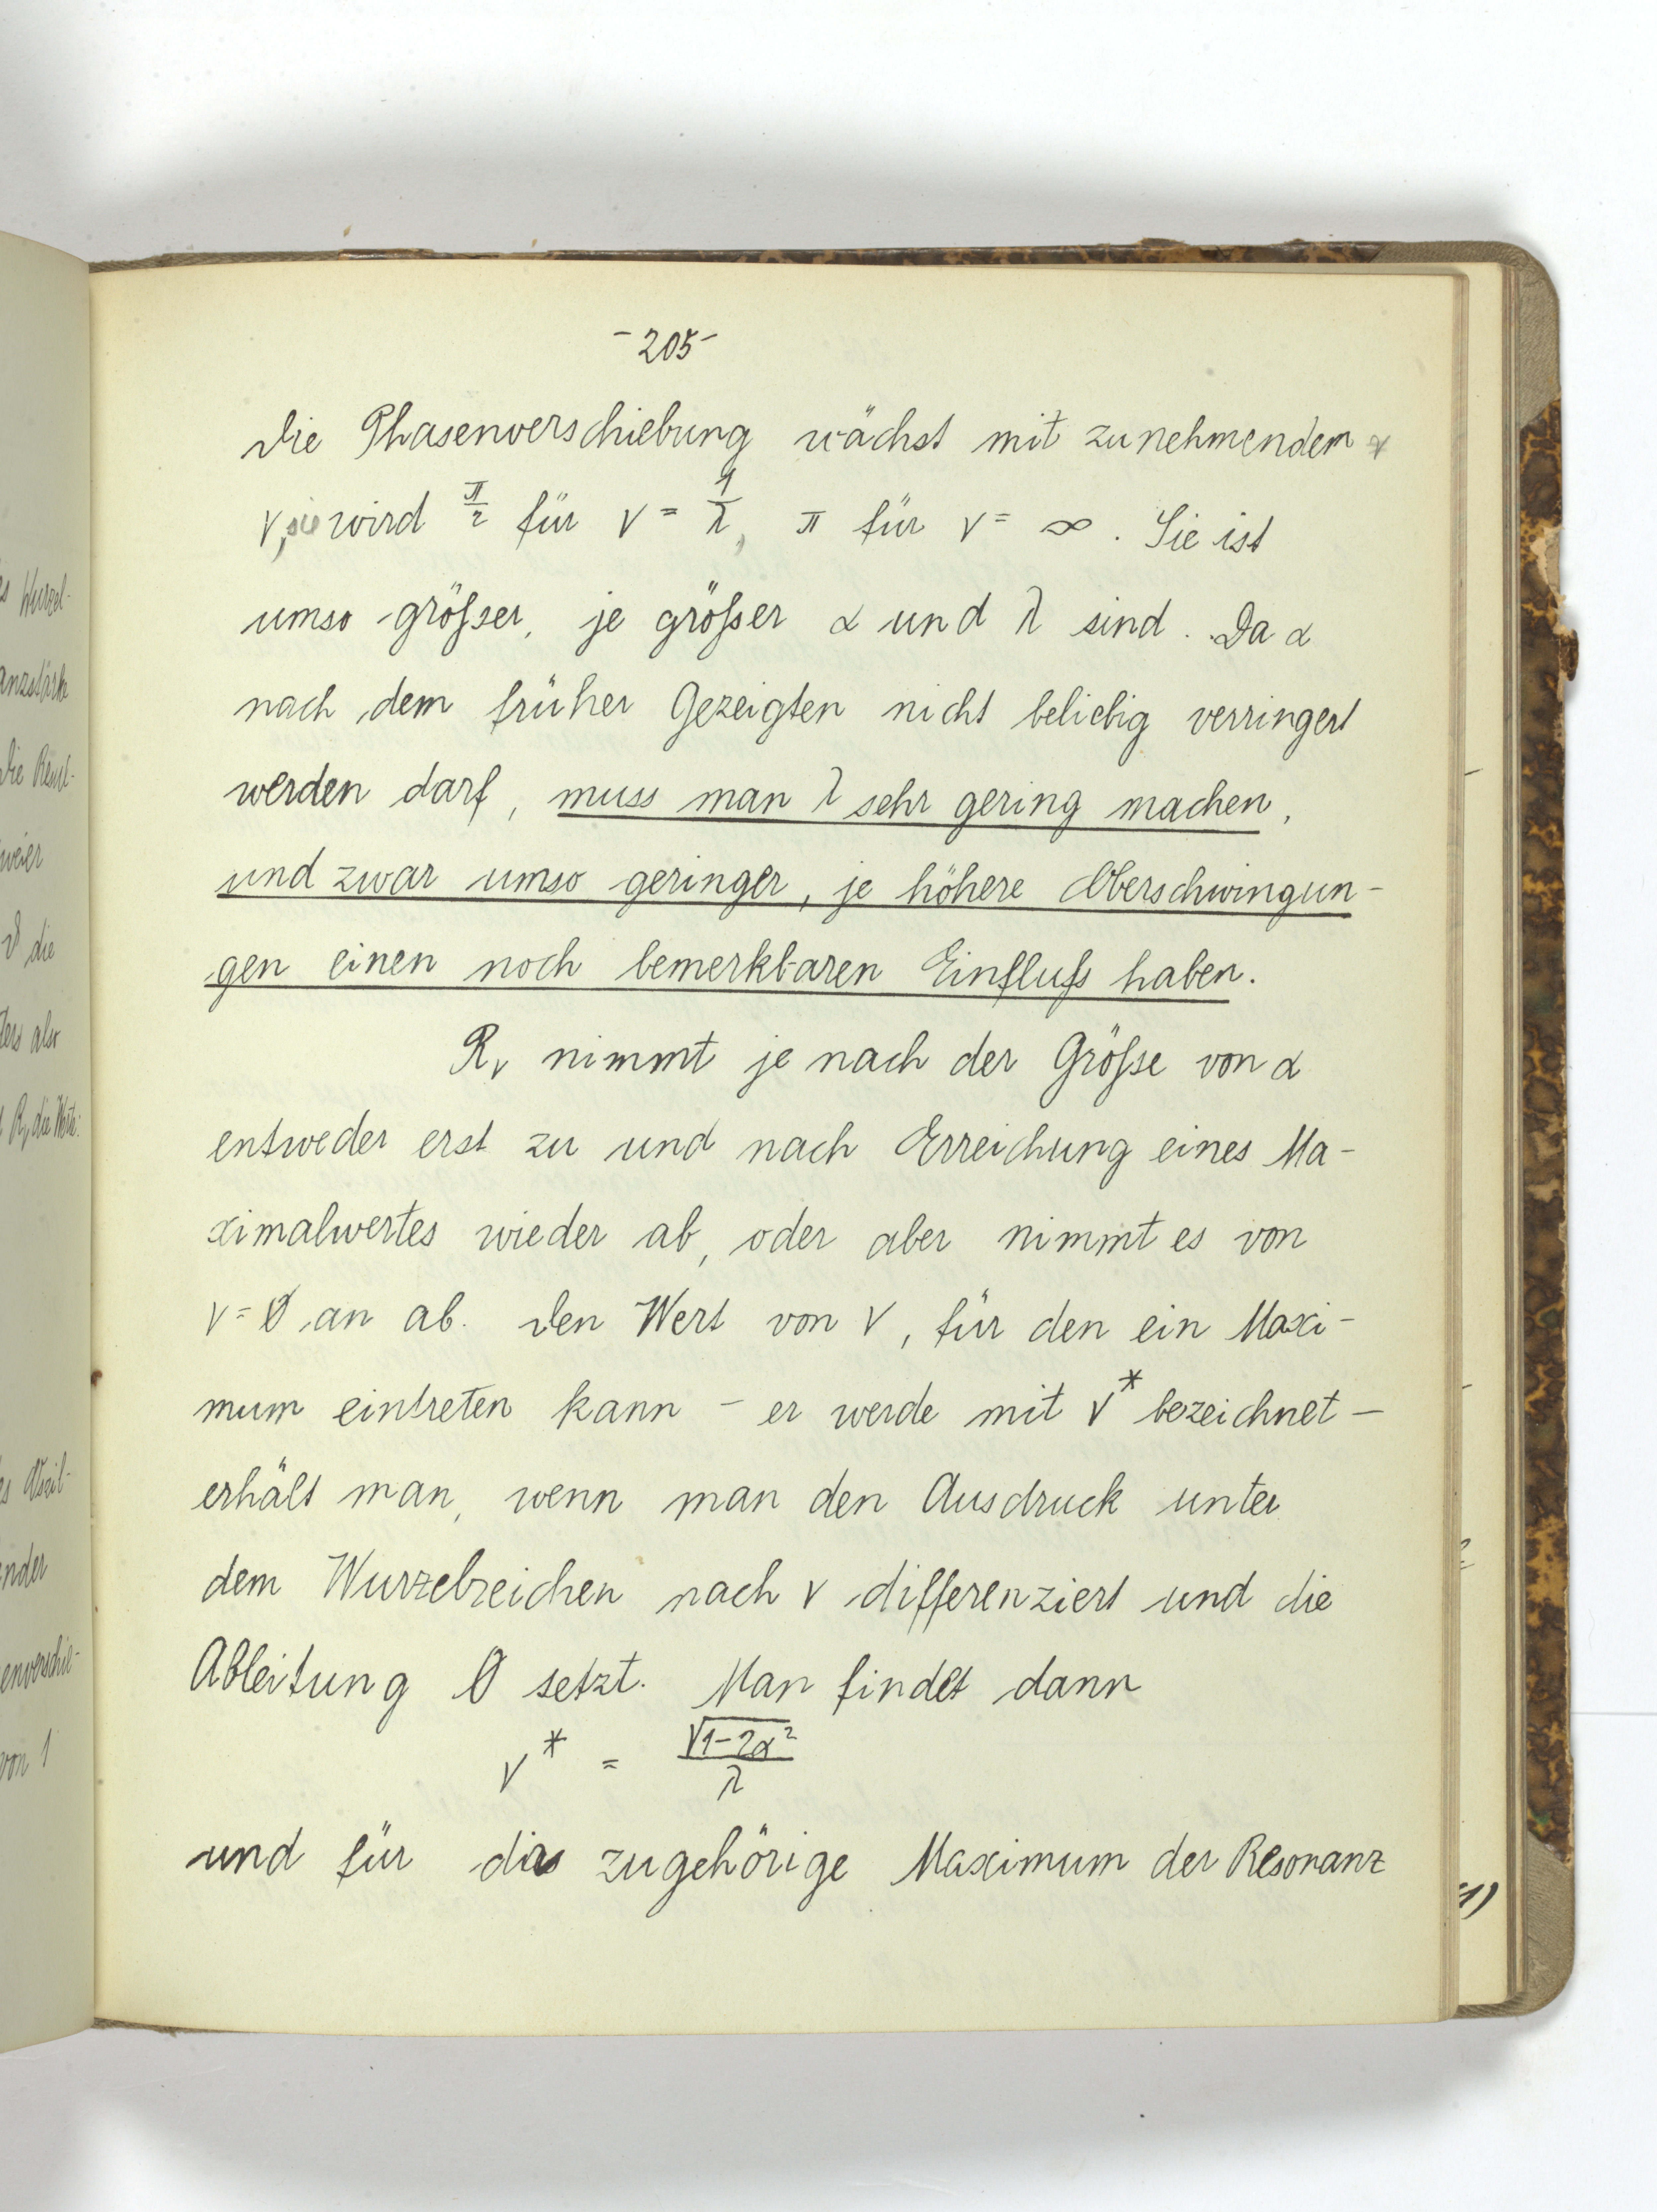 -205-
Die Phasenverschiebung wächst mit zunehmendem
ν, sie wird π/2 für ν = 1/λ, π für ν = ∞. Sie ist
umso größer, je größer α und λ sind. Da α
nach dem früher Gezeigten nicht beliebig verringert
werden darf, muss man λ sehr gering machen,
und zwar umso geringer, je höhere Oberschwingun-
gen einen noch bemerkbaren Einfluß haben.
Rν nimmt je nach der Größe von α
entweder erst zu und nach Erreichung eines Ma-
ximalwertes wieder ab, oder aber nimmt es von
ν = 0 an ab. Den Wert von ν, für den ein Maxi-
mum eintreten kann – er werde mit ν* bezeichnet –
erhält man, wenn man den Ausdruck unter
dem Wurzelzeichen nach ν differenziert und die
Ableitung 0 setzt. Man findet dann
ν* = √(1-2α²)/λ
und für das zugehörige Maximum der Resonanz
Wurzel-
die
von 1